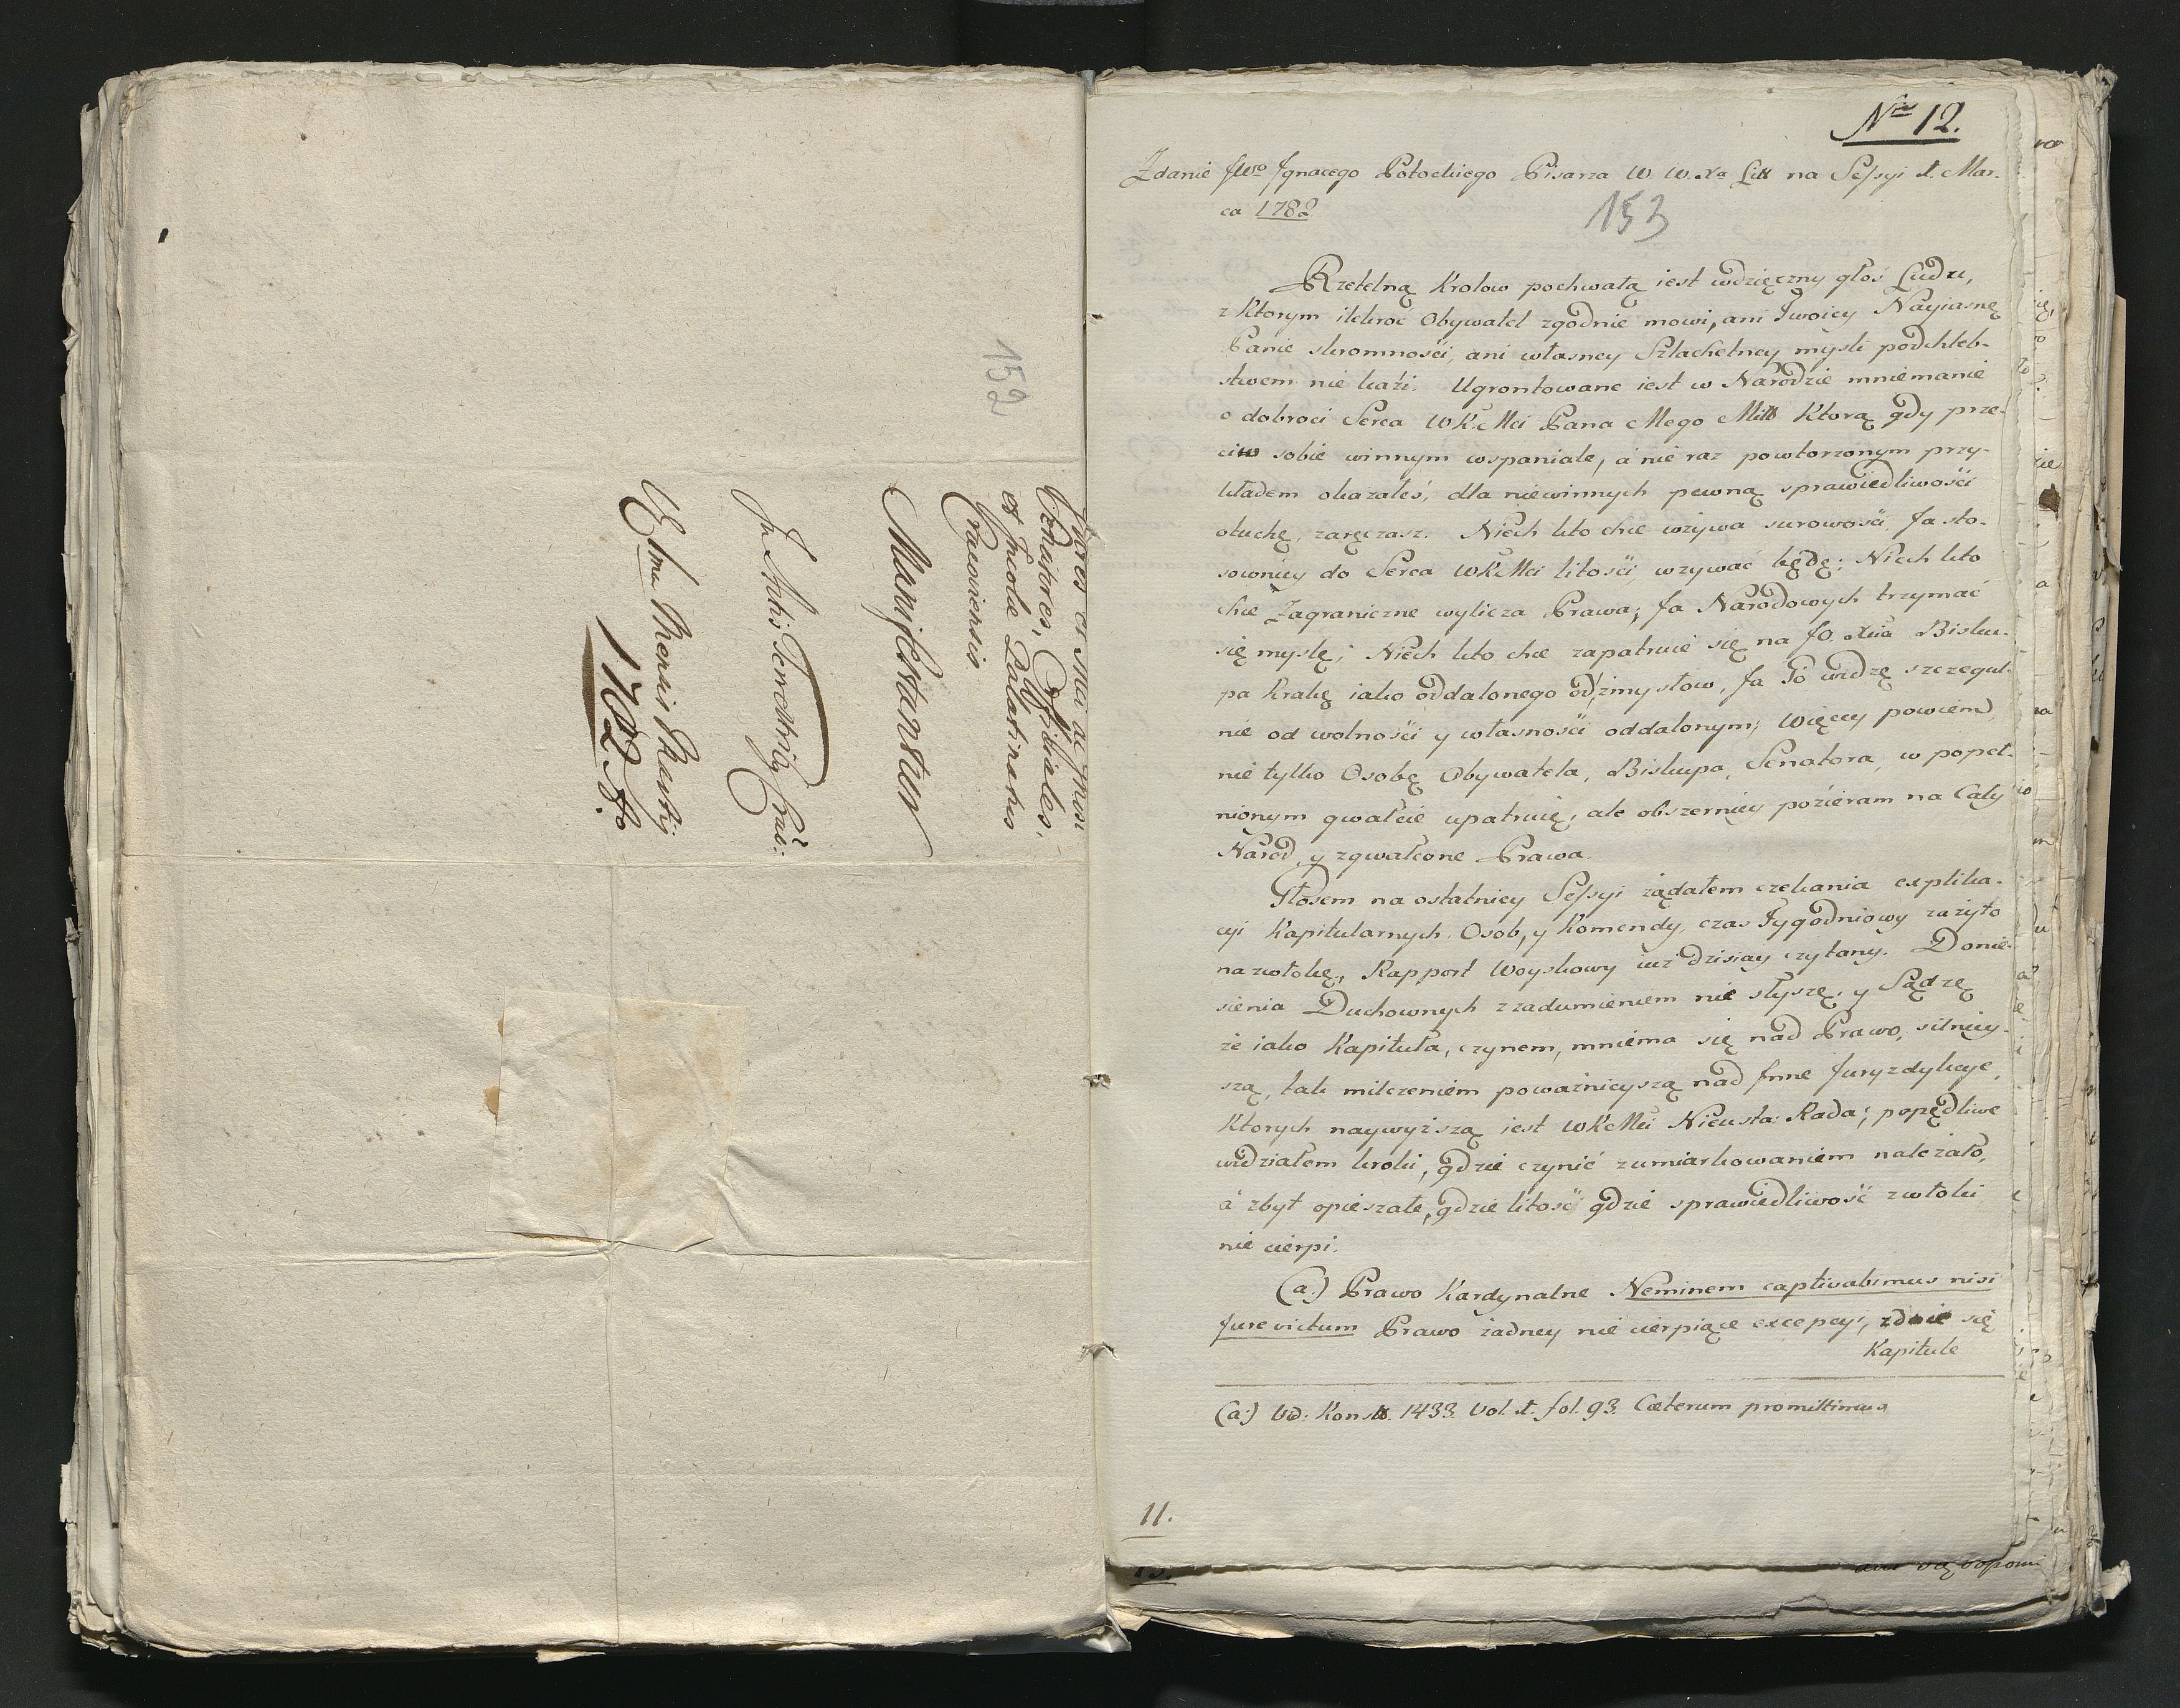 152
Proceres et
Senatores, Officiales,
et Incolae Palatinatus
Cracoviensis
Manifestantur
In Actis Terrestribus Crac:
1782 Ao
Nro 12.
Zdanie JWo Ignacego Potockiego Pisarza W W. Xa Litt na Sessyi 1. Mar-
ca 1782
153
Rzetelną Krolow pochwałą iest wdzięczny głos Ludu,
z Ktorym ilekroć Obywatel zgodnie mowi, ani Twoiey Nayiasnę
Panie skromności, ani własney Szlachetney mysli podchleb-
stwem nie kazi. Ugrontowane iest w Narodzie mniemanie
o dobroci Serca WKMci Pana Mego Mitt Ktorą gdy prze-
ciw sobie winnym wspaniale, á nie raz powtorzonym przy-
kładem okazałeś, dla niewinnych pewną sprawiedliwości
otuchę, zaręczasz. Niech kto chce wżywa surowości, Ja sto-
sowniey do Serca WKMci litości wzywać będę; Niech kto
chce Zagraniczne wylicza Prawa; Ja Narodowych trzymać
się myslę; Niech kto chce zapatruie się na JO. Xcia Bisku-
pa Krakę iako oddalonego od zmysłow, Ja Go widzę szczegul-
nie od wolności y własności oddalonym; Więcey powiem,
nie tylko Osobę Obywatela, Biskupa, Senatora, w popeł-
nionym gwałcie upatruię, ale obszerniey poźieram na Cały
Narod, y zgwałcone Prawa.
Głosem na ostatniey Sessyi żądałem czekania explika-
cyi Kapitularnych Osob, y Komendy, czas Tygodniowy zażyto
na zwłokę, Rapport Woyskowy iuż dzisiay czytany. Donie-
sienia Duchownych z zadumieniem nie słyszę, y Sądzę
że iako Kapituła, czynem, mniema się nad Prawo, silniey-
szą, tak milczeniem poważnieyszą nad Inne Juryzdykcye,
Ktorych naywyższą iest WKMci Nieusta: Rada; popędliwe
widziałem kroki, gdzie czynić z umiarkowaniem należało,
á zbyt opieszałe, gdzie litość gdzie sprawiedliwość zwłoki
nie cierpi.
(a.) Prawo Kardynalne Neminem captivabimus nisi
Jure victum Prawo żadney nie cierpiące excepcyi, zdaie się
Kapitule
(a:) Vid: Konstt. 1433. Vol. 1. fol. 93. Cæterum promittimus
11.
13.